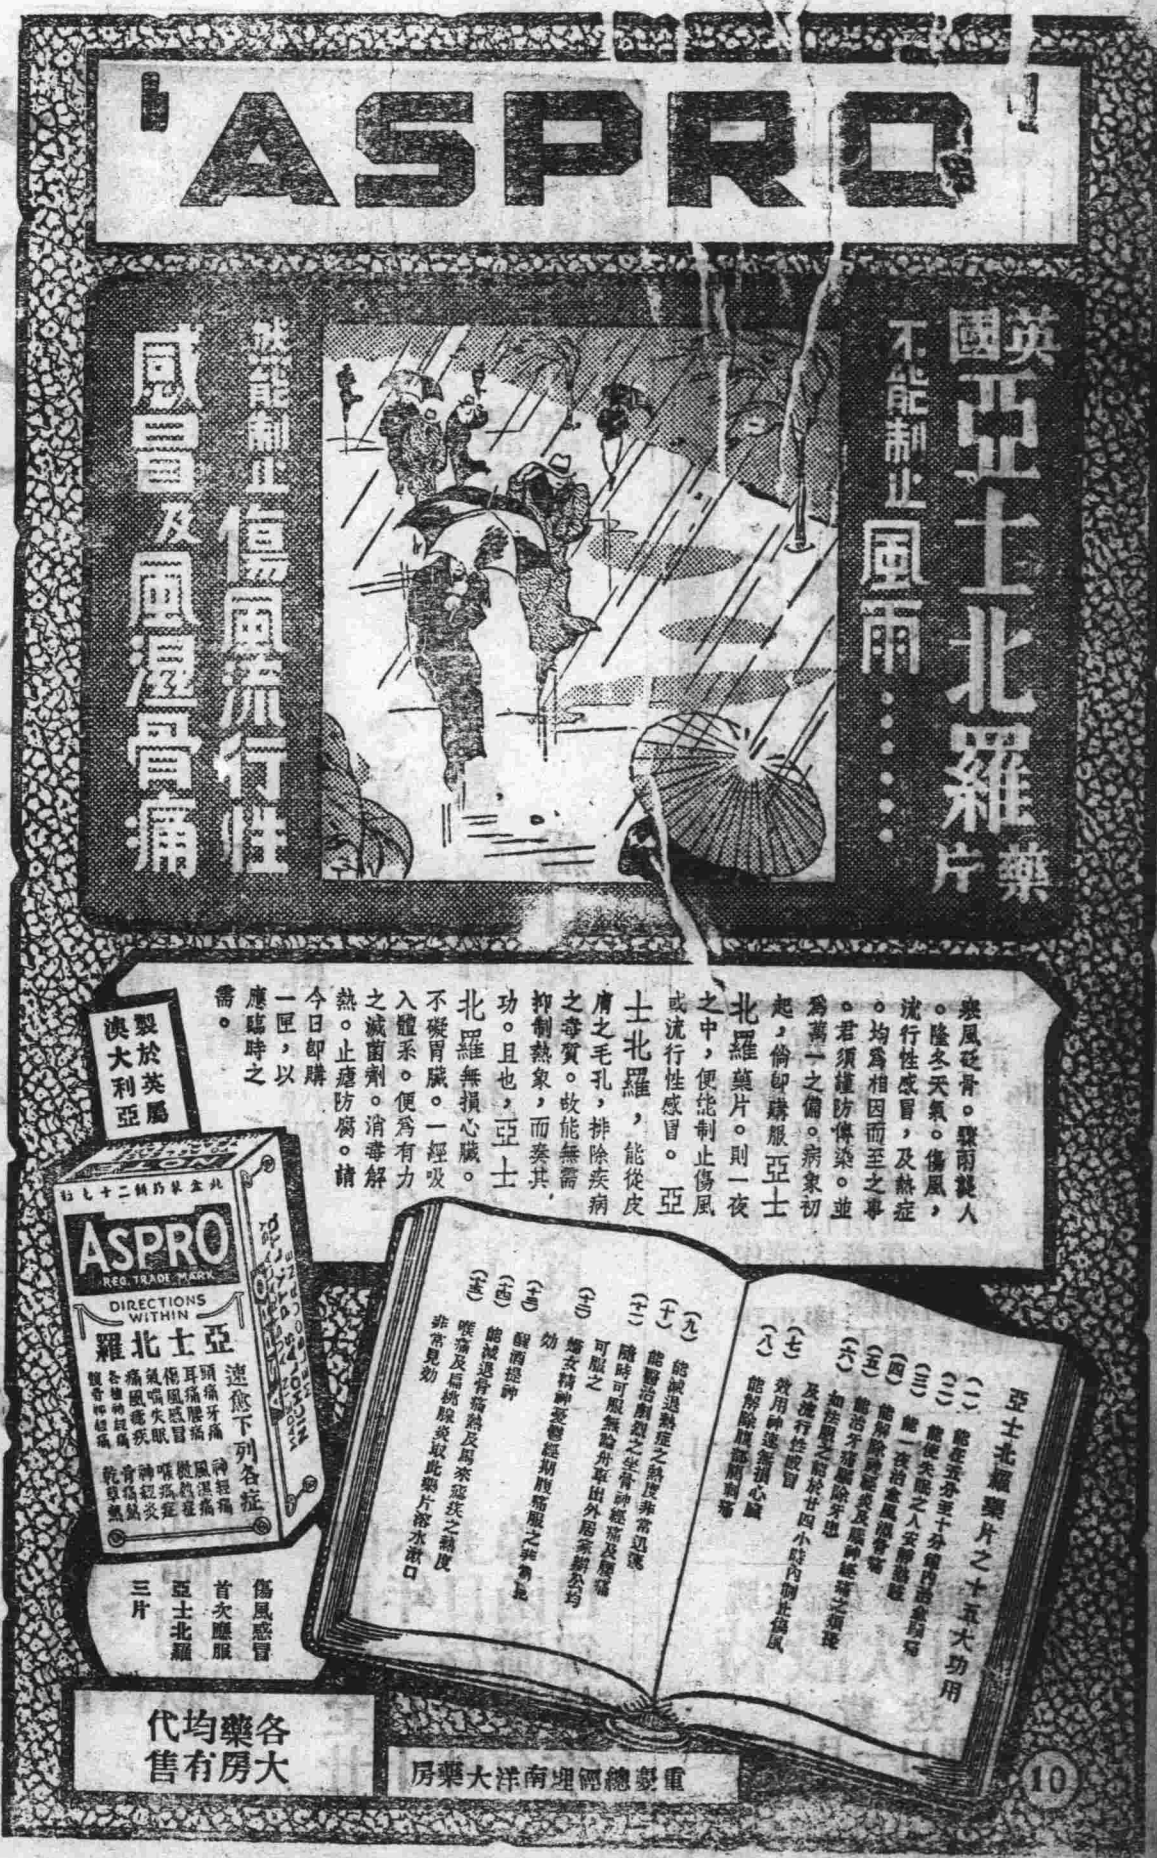 'ASPRO'
英國
亞士北羅
藥片
不能制止風雨……
然能制止傷風流行性
感冒及風濕骨痛
寒風砭骨。驟雨襲人
。隆冬天氣。傷風,
流行性感冒,及熱症
。均爲相因而至之事
。君須謹防傳染。並
爲萬一之備。病象初
起,倘卽購服亞士
北羅藥片。則一夜
之中,便能制止傷風
或流行性感冒。亞
士北羅,能從皮
膚之毛孔,排除疾病
之毒質。故能無需
抑制熱象,而奏其
功。且也,亞士
北羅無損心臟。
不礙胃臟。一經吸
入體系。便爲有力
之滅菌劑。消毒解
熱。止瘧防腐。請
今日卽購
一匣,以
應臨時之
需。
製於英屬
澳大利亞
此盒裝藥餅二十七粒
ASPRO
REG. TRADE MARK
DIRECTIONS
WITHIN
亞士北羅
速愈下列各症
頭痛牙痛 神經痛
耳痛腰痛 風濕痛
傷風感冒
氣喘失眠 喉痛症
痛風瘧疾 神經炎
骨痛熱
亞士北羅藥片之十五大功用
(一) 能在五分至十分鐘內治愈頭痛
(二) 能使失眠之人安靜熟睡
(三) 能一夜治愈風濕骨痛
(四) 能解除神經炎及
(五) 能治牙痛驅除牙患
(六) 如法服之能於廿四小時內制止傷風
及流行性感冒
(七) 效用神速無損心臟
(八) 能解除腹部關刺痛
(九) 能減退熱症之熱度非常迅速
(十) 能醫治劇烈之坐骨神經痛及腰痛
(十一) 隨時可服無論舟車出外居家辦公均
可服之
(十二) 婦女精神憂鬱經期腹痛服之非常見
効
(十三) 醒酒提神
(十四) 能減退骨痛熱及馬來瘧疾之熱度
(十五) 喉痛及扁桃腺炎取此藥片溶水漱口
非常見効
傷風感冒
首次應服
亞士北羅
三片
各大藥房均有代售
重慶總經理南洋大藥房
10